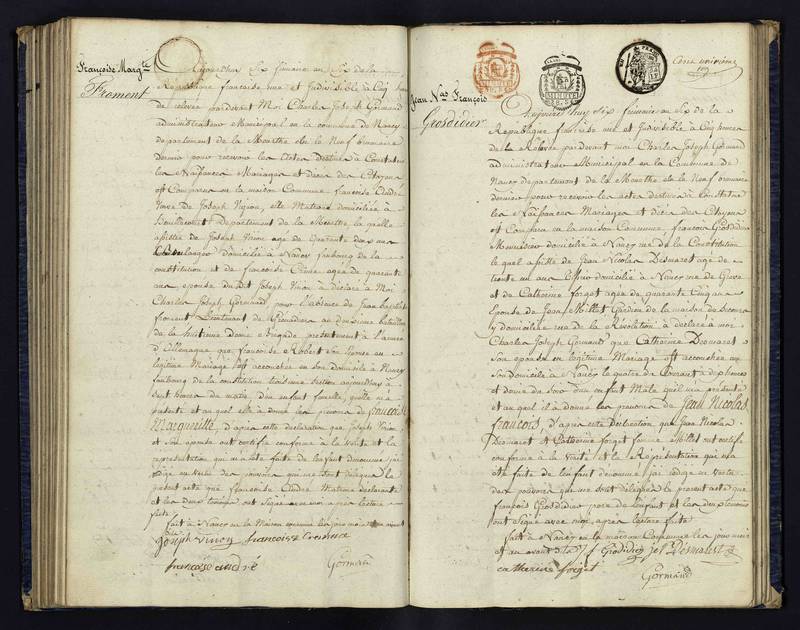 Françoise Marg.te
Froment
Aujourdhui six frimaire an six de la
Republique françoise une et Indivisible à Cinq heures
de relevée pardevant Moi Charles Joseph Gormand
administrateur Municipal en la commune de Nancy
departement de la Meurthe élu le Neuf brumaire
dernier pour recevoir les Actes destinés à Constater
les Naissances Mariages et deces des Citoyens
est Comparue en la maison Commune françoise André
de Joseph Vinon, elle Matrone domiciliée à
Departement de la Meurthe, la quelle
assistée de Joseph Vinon agé de quarante deux ans
Boulanger Domicilié à Nancy faubourg de la
constitution et de françoise agée de quarante
ans epouse du dit Joseph Vinon à déclaré à Moi
Charles Joseph Gormand, pour l'absence de Jean baptiste
froment Lieutenant de Grenadiers au deuxieme bataillon
de la huitieme Demie Brigade presentement à l'armée
d'Allemagne que françoise Robert son Epouse en
legitime Mariage est accouchée en son domicile à Nancy
faubourg de la constitution troisieme Section aujourdhuy à
sept heures du matin d'un enfant femelle, quelle m'a
presenté et auquel elle à donné les prenoms de françoise
Margueritte, d'après cette declaration que Joseph Vinon
et son epouse ont certifié conforme à la verité et la
representation qui m'a été faite de l'enfant denommé j'ai
rédigé en vertu des pouvoirs qui me sont délégués le
present acte que francoise André Matrone déclarante
et les deux témoins ont Signé avec moi après lecture
faite
fait à Nancy en la Maison commune les jour mois et an avant
joseph vinon francoise
francoise andré Gormand
Cent unieme
Jean N.as François
Grosdidier
Aujourdhuy Six frimaire an Six de la
République francoise une et Indivisible à Cinq heures
de la Relevée pardevant moi Charles Joseph Gormand
administrateur Municipal en la Commune de
Nancy departement de la Meurthe élu le Neuf brumaire
dernier pour recevoir les actes destinés à Constater
les Naissances Mariages et deces des Citoyens
est Comparu en la maison Commune, francois Grosdidier
Menuisier domicilié à Nancy rue de la Constitution
le quel assisté de Jean Nicolas Desmarest agé de
trente un ans domicilié à Nancy rue de Greve
et de Catherine forget agée de quarante Cinq ans
Epouse de Jean Millet Gardien de la maison de Secours
y domiciliée rue de la Révolution à déclaré à moi
Charles Joseph Gormand que Catherine Desmarest
Son epouse en legitime Mariage est accouchée en
son Domicile à Nancy le quatre du Courant à dix heures
et demie du soir d'un enfant Male quil m'a presenté
et auquel il à donné les prenoms de Jean Nicolas
François, D'apres cette Déclaration que Jean Nicolas
Desmarest et Catherine forget femme Millet ont certifié
conforme à la Verité et la Représentation qui m'a
été faite de l'enfant denommé, j'ai rédigé en vertu
des pouvoirs qui me sont délégués le présent acte que
François Grosdidier père de l'enfant et les deux témoins
ont Signé avec moi après lecture faite
fait à Nancy en la maison Commune les jour mois
et an avant dits f Grosdidier Desmarest
catherine forget
Gormand